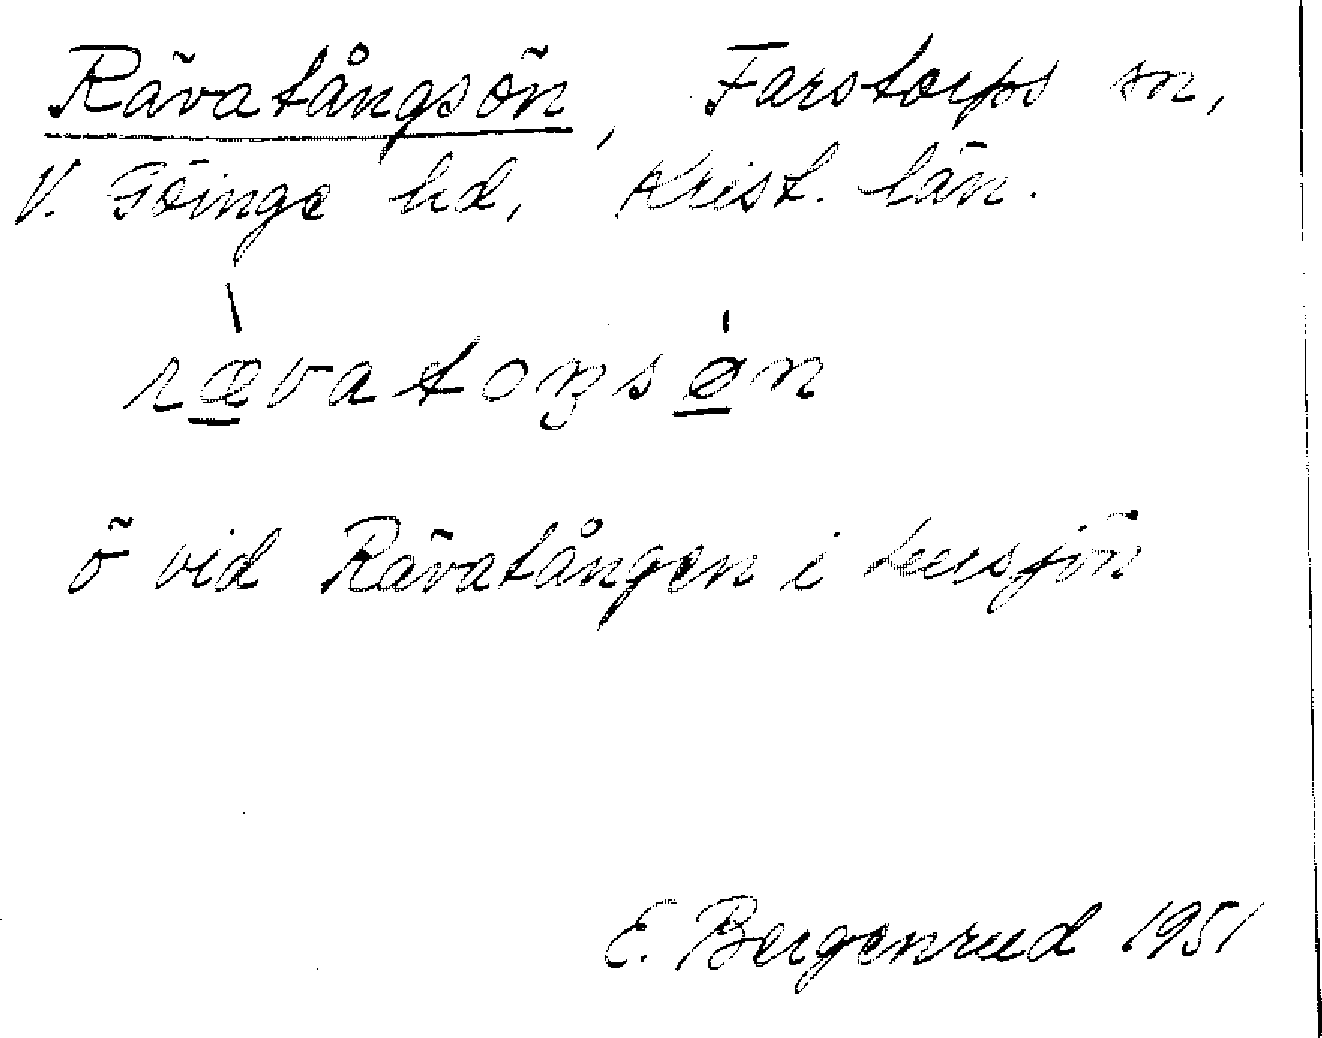 Rävatångsön, Farstorps sn,
V. Göinge hd, Krist. län.
rævatoŋsøn
ö vid Rävatången i
E. Bergenrud 1951